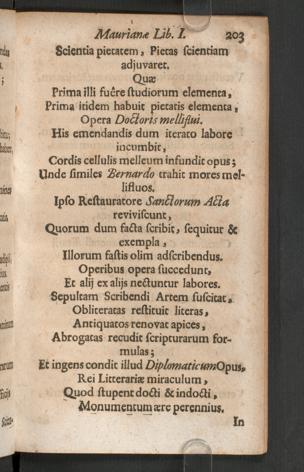 Maurianæ Lib. I. 203
Scientia pietatem, Pietas scientiam
adjuvaret.
Quæ
Prima illi fuêre studiorum elementa,
Prima itidem habuit pietatis elementa,
Opera Doctoris melliflui.
His emendandis dum iterato labore
incumbit,
Cordis cellulis melleum infundit opus;
Unde similes Bernardo trahit mores mel-
lifluos.
Ipso Restauratore Sanctorum Acta
reviviscunt,
Quorum dum facta scribit, sequitur &
exempla,
Illorum fastis olim adscribendus.
Operibus opera succedunt,
Et alij ex alijs nectuntur labores.
Sepultam Scribendi Artem suscitat,
Obliteratas restituit literas,
Antiquatos renovat apices,
Abrogatas recudit scripturarum for-
mulas;
Et ingens condit illud DiplomaticumOpus,
Rei Litterariæ miraculum,
Quod stupent docti & indocti,
Monumentum ære perennius.
In